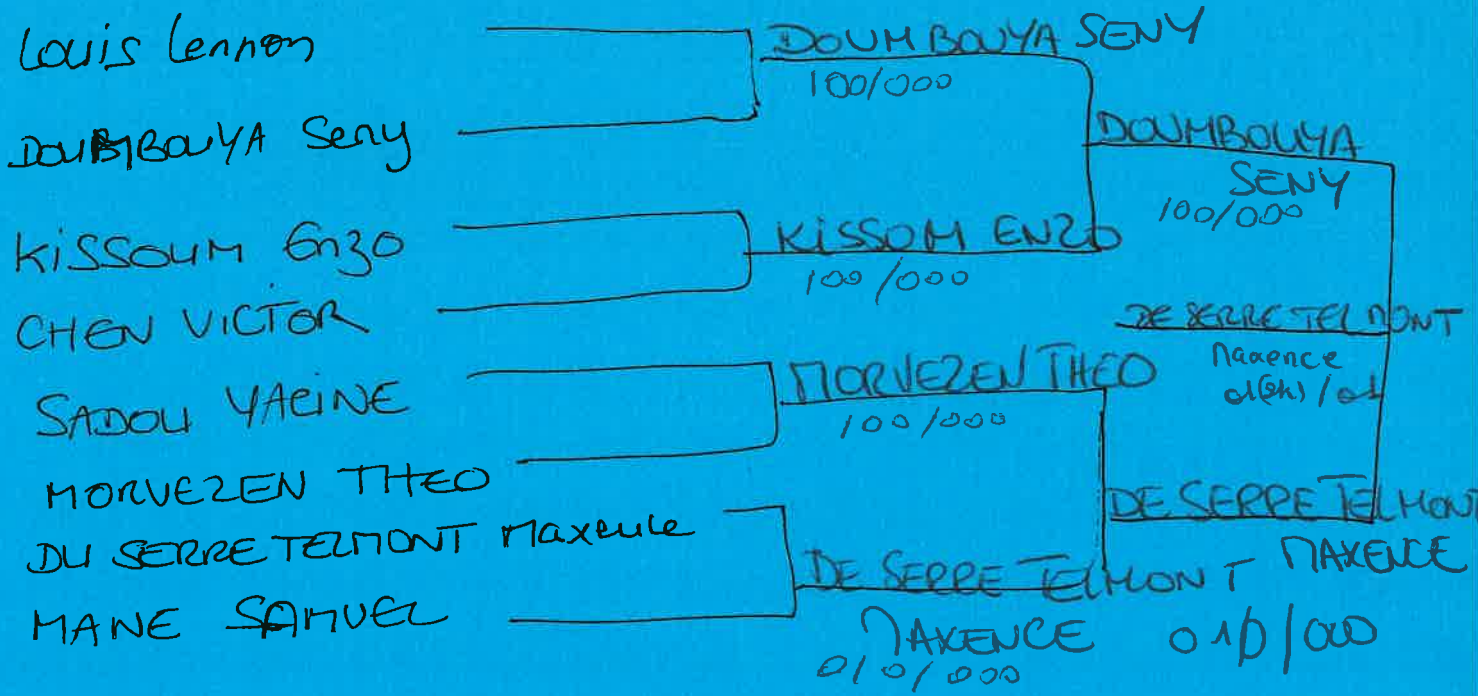 Louis Lennon
DOUMBOUYA Seny
KISSOUM Enzo
CHEN VICTOR
SADOU YACINE
MORVEZEN THEO
DU SERRE TELMONT Maxence
MANE SAMUEL
DOUMBOUYA SENY
100/000
KISSOM ENZO
100/000
MORVEZEN THEO
100/000
DE SERRE TELMONT
MAXENCE
010/000
DOUMBOUYA
SENY
100/000
DE SERRE TELMONT
MAXENCE
010/000
DE SERRE TELMONT
Maxence